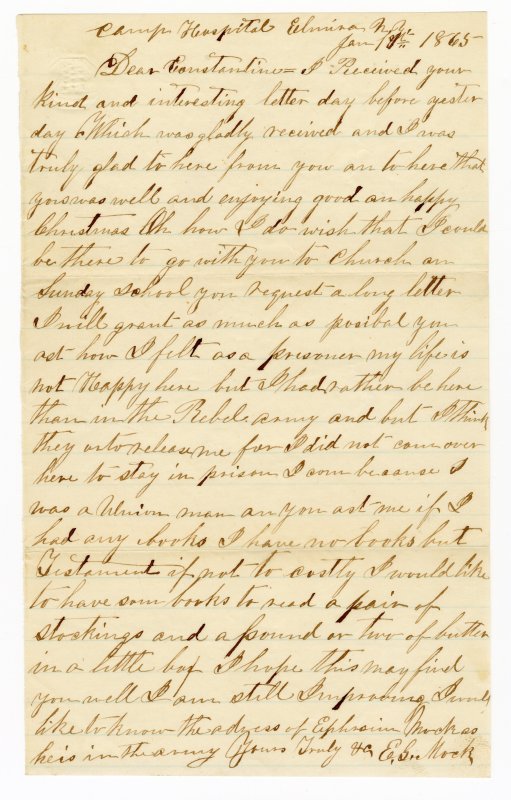 Camp Hospital Elmira N.Y.
Jan 1865
Dear Constantine = I Received your
kind and interesting letter day before yester
day Which was gladly received and I was
truly glad to here from you an to here that
yors was well and enjoying good an happy
Christmas Oh how I do wish that I could
be there to go with you to Church an
Sunday School you request a long letter
I will grant as much as posibal you
ast how I felt as a prisoner my life is
not Happy here but I had rather be here
than in the Rebel army and but I think
they orto release me for I did not com over
here to stay in prison I com because I
was a Union man an you ast me if I
had any books I have no books but
Testament if not to costly I would like
to have som books to read a pair of
stockings and a pound or two of butter
in a little box I hope this may find
you well I am still Improving I would
like to know the adress of Ephraim Mock as
he is in the army Yours Truly &c E. Mock